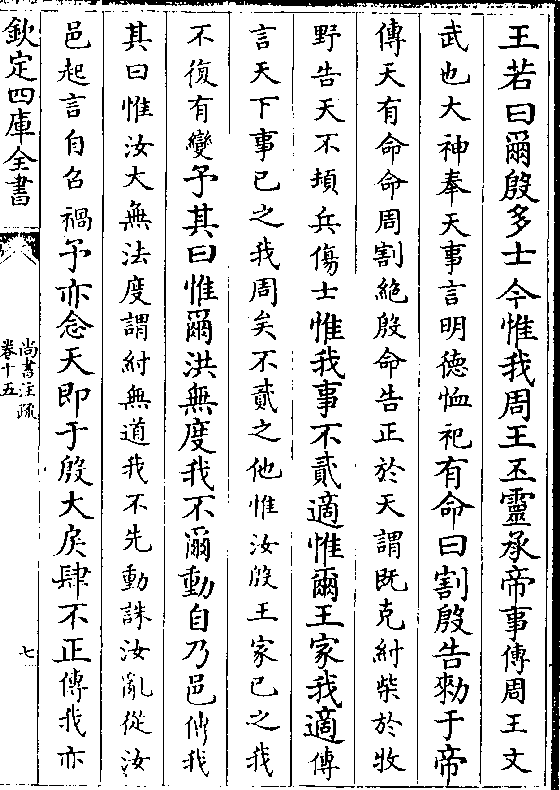 王若曰爾殷多士今惟我周王丕靈承帝事傳周王文
武也大神奉天事言明德恤祀有命曰割殷告勑于帝
傳天有命命周割絶殷命告正於天謂既克紂柴於牧
野告天不頓兵傷士惟我事不貳適惟爾王家我適傳
言天下事已之我周矣不貳之他惟汝殷王家已之我
不復有變予其曰惟爾洪無度我不爾動自乃邑傳我
其曰惟汝大無法度謂紂無道我不先動誅汝亂從汝
邑起言自召禍予亦念天即于殷大戾肆不正傳我亦
欽定四庫全書
尚書注疏
卷十五
七